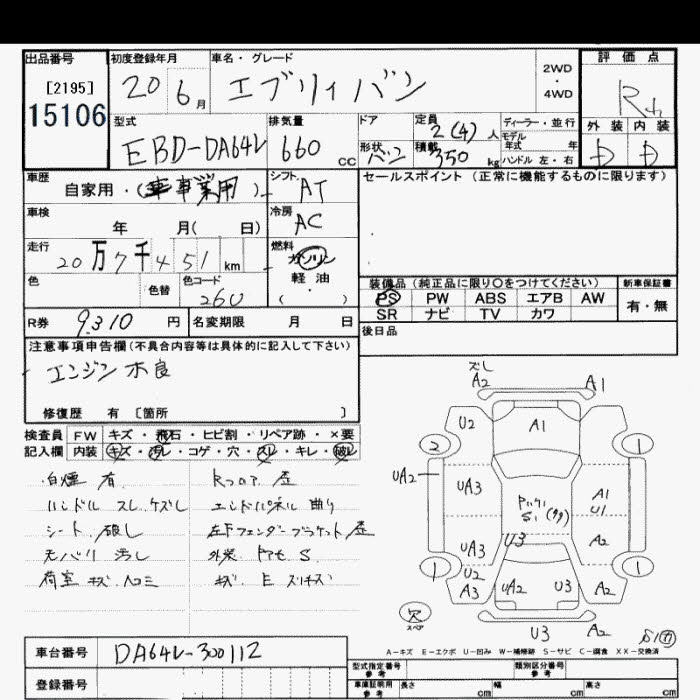 出品番号
[2195]
15106
初度登録年月
20 6月
車名・グレード
エブリィ バン
2WD
・
4WD
評価点
外装 内装
D D
型式
EBD-DA64V
排気量
660 cc
ドア
形状 バン
定員
2(4)人
積載
350 kg
ディーラー・並行
モデル
年式 年
ハンドル 左・右
車歴
自家用・(事業用)
シフト
AT
車検
年 月( 日)
冷房
AC
走行
20万7千451 km
燃料
ガソリン
軽油
( )
色
色替
色コード
26U
R券 9,310 円
名変期限 月 日
セールスポイント (正常に機能するものに限ります)
装備品(純正品に限り○をつけてください)
新車保証書
PS PW ABS エアB AW
SR ナビ TV カワ
有・無
後日品
注意事項申告欄(不具合内容等は具体的に記入して下さい)
エンジン不良
修復歴 有 [箇所 ]
検査員 FW キズ・飛石・ヒビ割・リペア跡・×要
記入欄 内装 キズ・汚レ・コゲ・穴・スレ・キレ・破レ
白煙 有
ハンドル スレ ケズレ
シート 破レ
天バリ 汚レ
荷室 キズ ヘコミ
エンドパネル 曲り
左Fフェンダーブラケット 歪
キズ E スリキズ
A2 A1
U2 A1
2 1
UA2 UA3 A1
U1
UA3 U3 A2
1 1
U2
A3 UA2 U3 A2
欠
スペア
U3 A2
A-キズ E-エクボ U-凹み W-補修跡 S-サビ C-腐食 XX-交換済
車台番号 DA64V-300112
登録番号
型式指定番号
参考
類別区分番号
参考
車庫証明用
参考
長さ cm 幅 cm 高さ cm